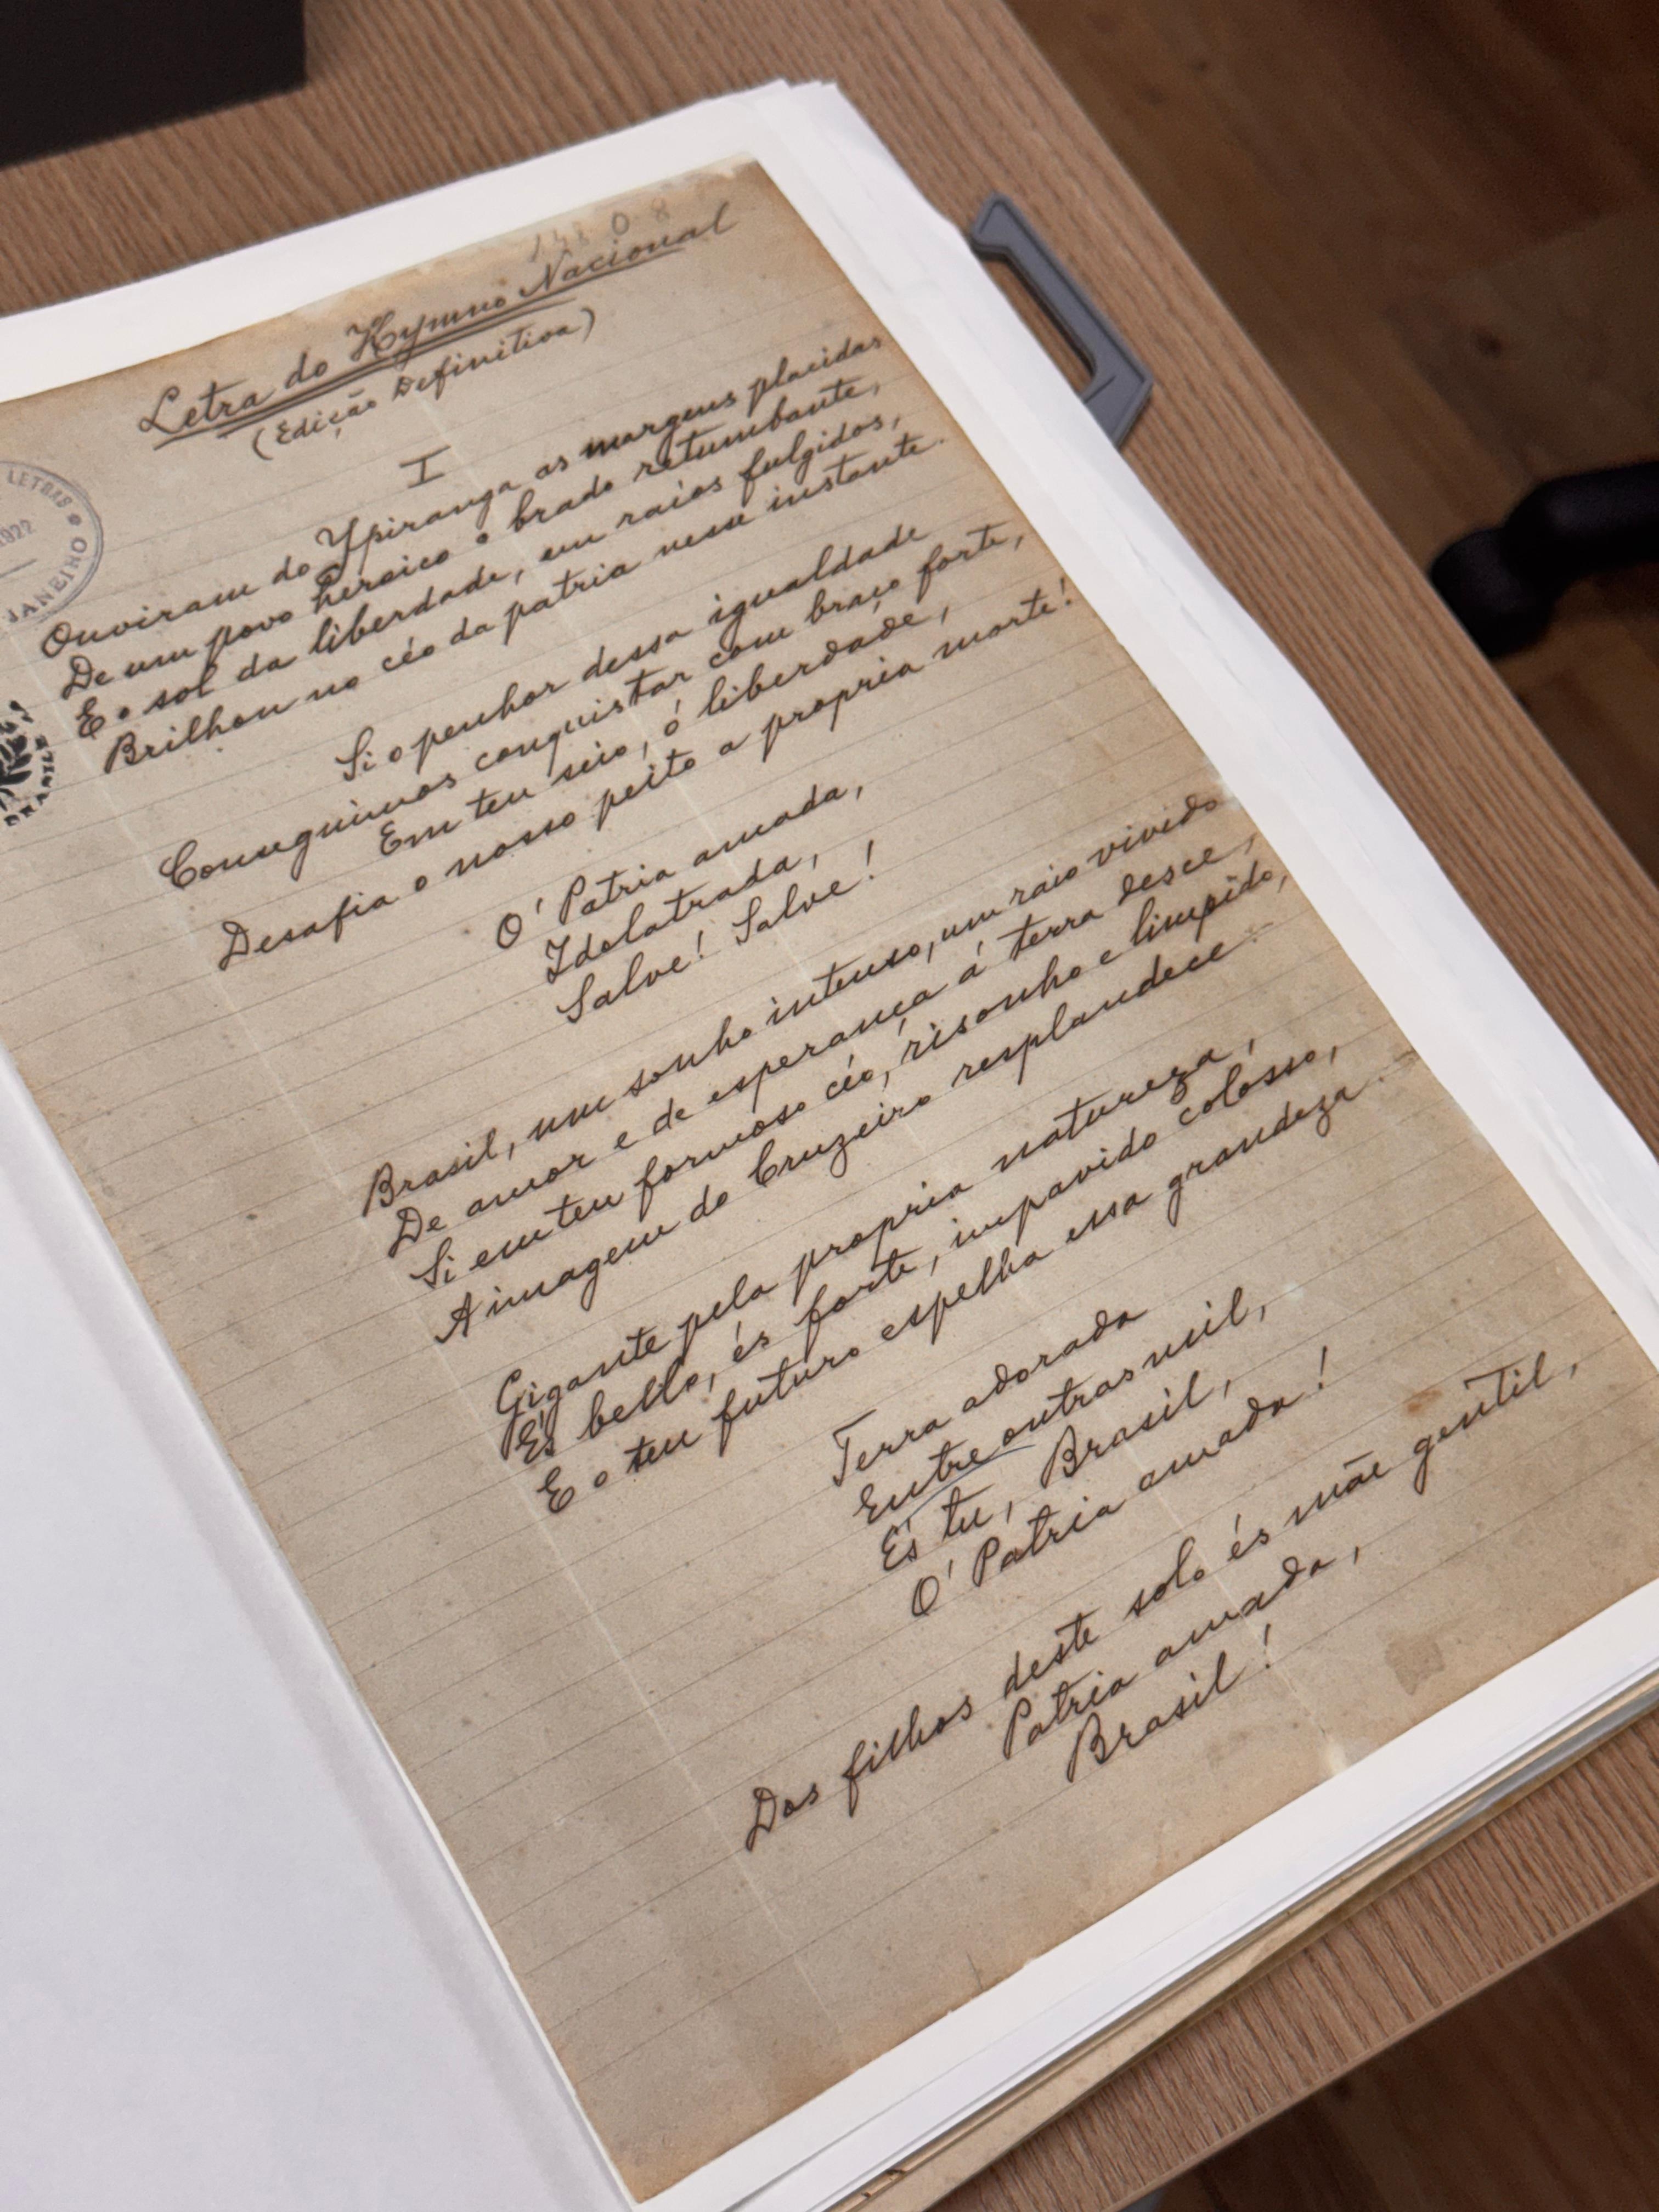 Letra do Hymno Nacional
(Edição Definitiva)
I
Ouviram do Ypiranga as margens placidas
De um povo heroico o brado retumbante,
E o sol da liberdade, em raios fulgidos,
Brilhou no céo da patria nesse instante.
Si o penhor dessa igualdade
Conseguimos conquistar com braço forte,
Em teu seio, ó liberdade,
Desafia o nosso peito a propria morte!
O' Patria amada,
Idolatrada,
Salve! Salve!
Brasil, um sonho intenso, um raio vivido
De amor e de esperança á terra desce,
Si em teu formoso céo, risonho e limpido,
A imagem do Cruzeiro resplandece.
Gigante pela propria natureza,
És bello, és forte, impavido colosso,
E o teu futuro espelha essa grandeza.
Terra adorada
Entre outras mil,
És tu, Brasil,
O' Patria amada!
Dos filhos deste solo és mãe gentil,
Patria amada,
Brasil!
LETRAS
1922
JANEIRO